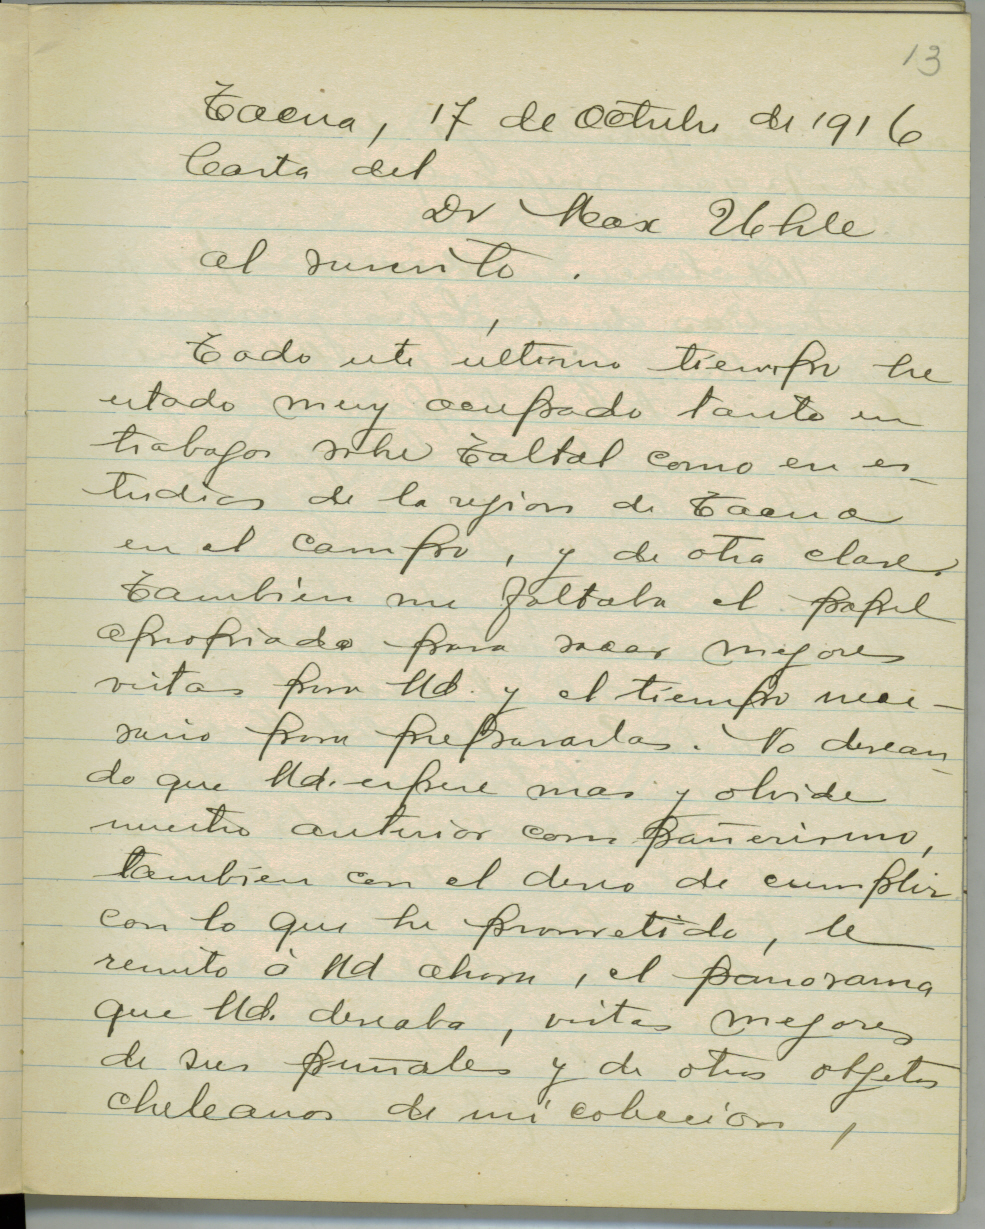 13
Tacna, 17 de Octubre de 1916
Carta del
Dr Max Uhle
al suscrito.
Todo este último tiempo he
estado muy ocupado tanto en
trabajos sobre Taltal como en es-
tudios de la region de Tacna
en el campo, y de otra clase.
Tambien me faltaba el papel
apropiado para sacar mejores
vistas para Ud. y el tiempo nece-
sario para prepararlas. No desean-
do que Ud. espere mas y olvide
nuestro anterior compañerismo,
tambien con el deseo de cumplir
con lo que he prometido, le
remito á Ud ahora, el panorama
que Ud. deseaba, vistas mejores
de sus puñales y de otros objetos
cheleanos de mi coleccion,